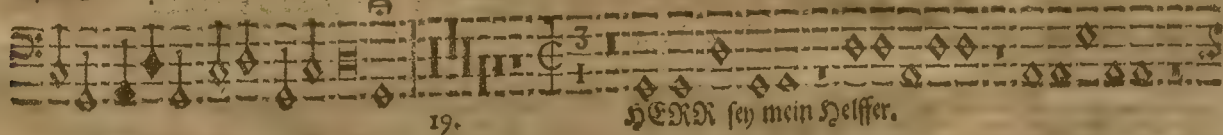 3
1
19. HERR sey mein Helffer.